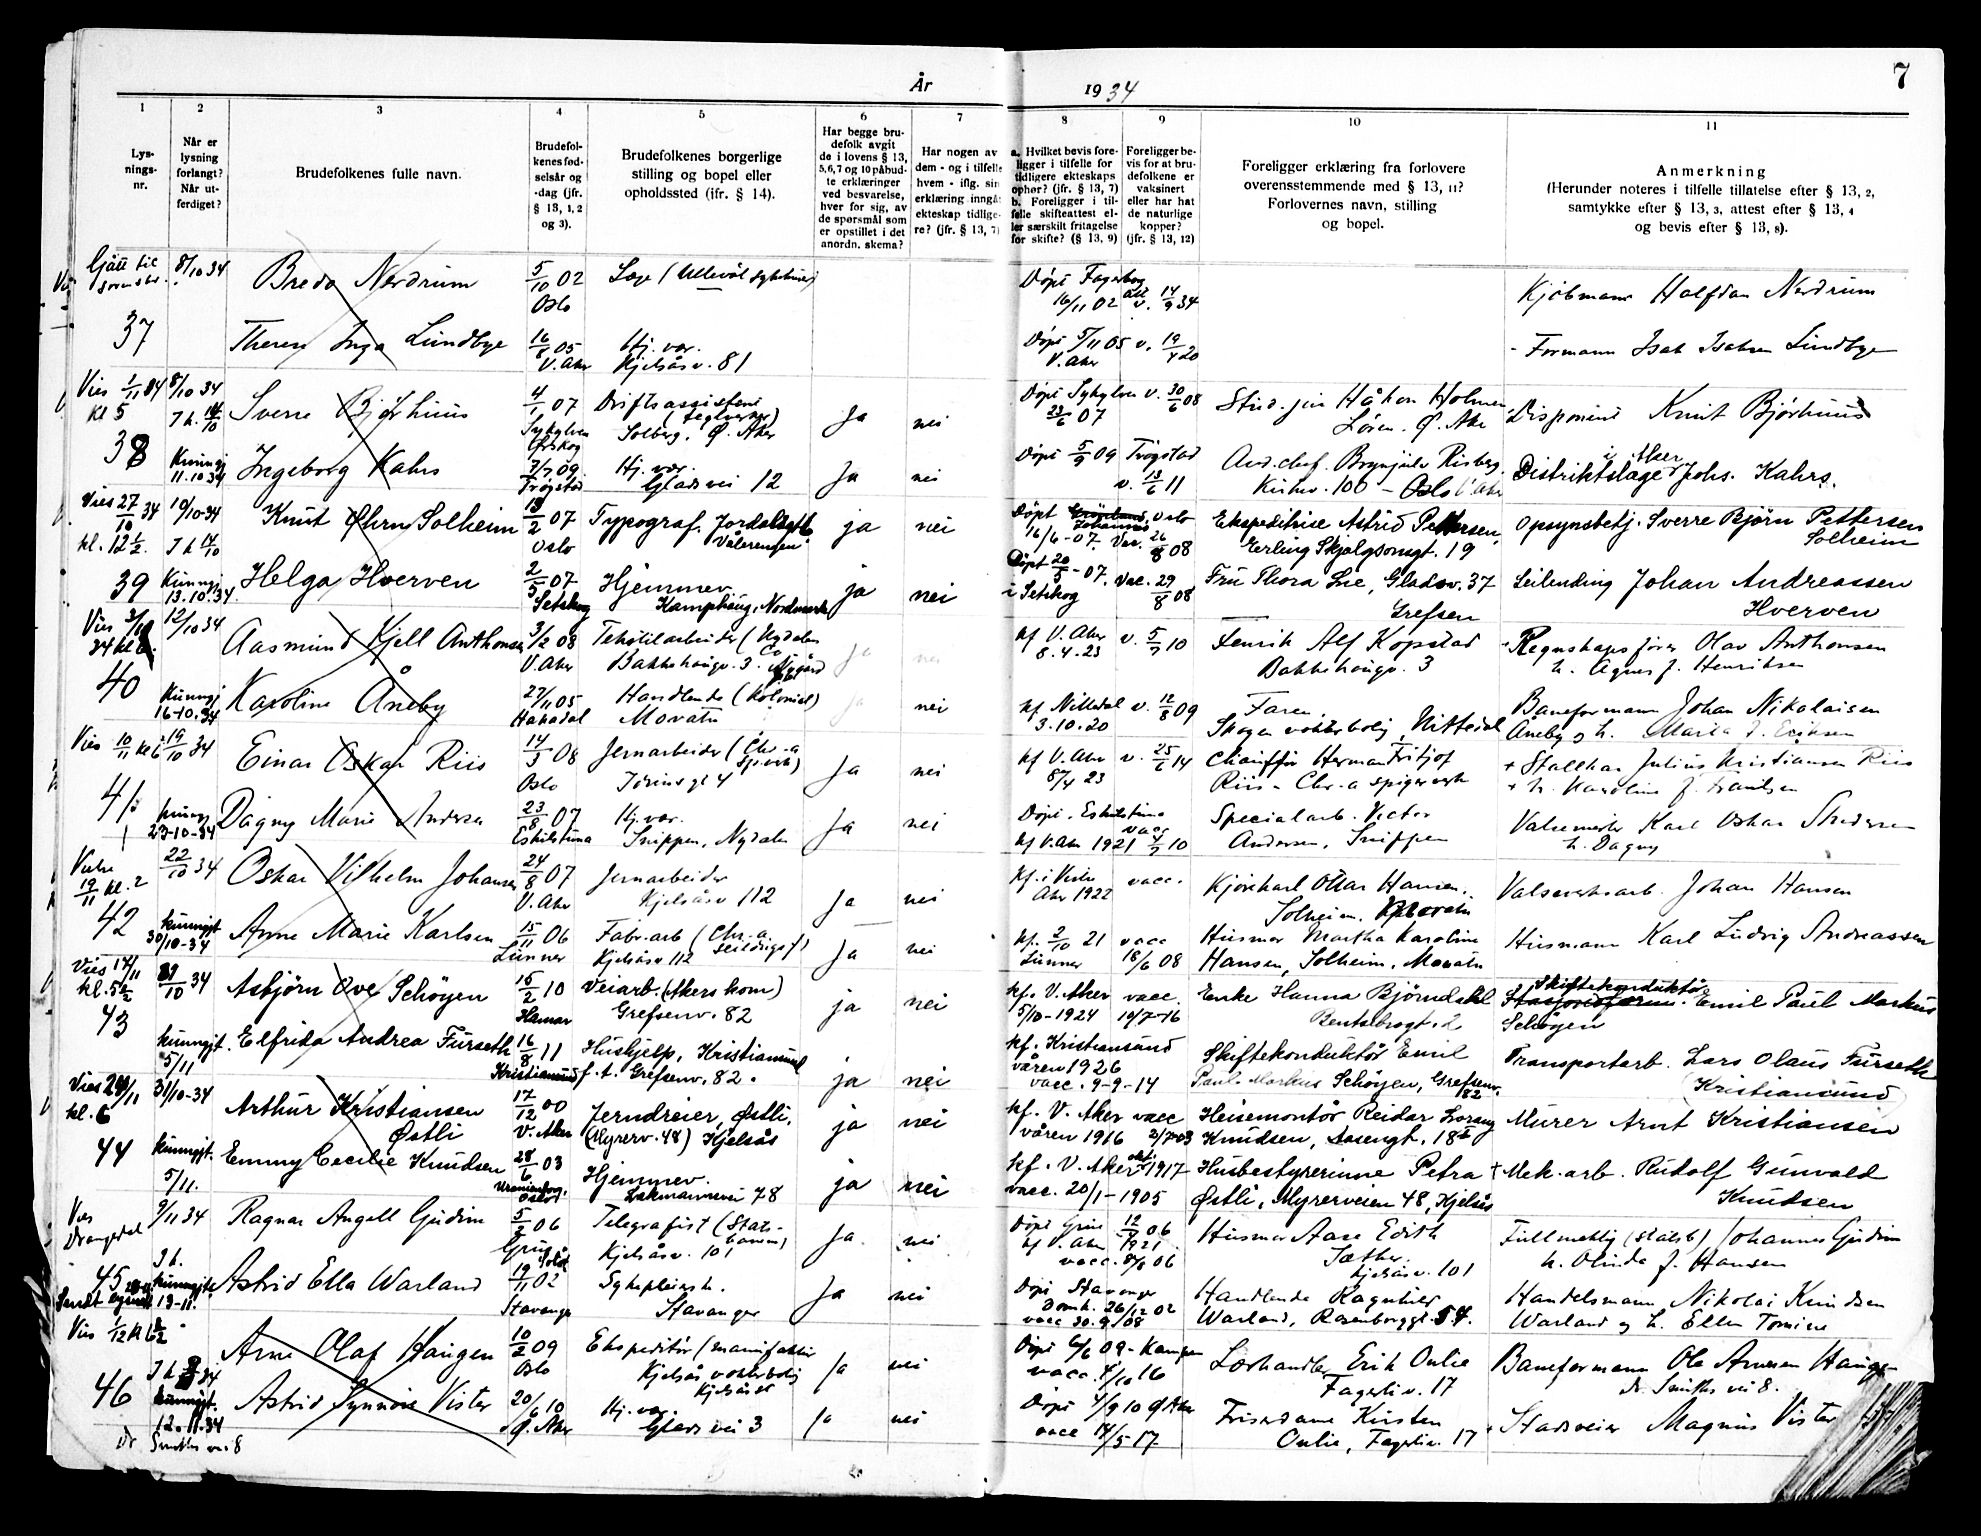 År 1934
7
1
2
3
4
5
6
7
8
9
10
11
Lys-
nings-
nr.
Når er
lysning
forlangt?
Når ut-
ferdiget?
Brudefolkenes fulle navn.
Brudefol-
kenes fød-
selsår og
-dag (jfr.
§ 13, 1, 2
og 3).
Brudefolkenes borgerlige
stilling og bopel eller
opholdssted (ifr. § 14).
Har begge bru-
defolk avgit
de i lovens § 13,
5,6,7 og 10 påbud-
te erklæringer
ved besvarelse,
hver for sig, av
de spørsmål som
er opstillet i det
anordn. skema?
Har nogen av
dem - og i tilfelle
hvem - iflg. sin
erklæring inngå
ekteskap tidlige-
re? (jfr. § 13, 7)
a. Hvilket bevis fore-
ligger i tilfelle for
tidligere ekteskaps
ophør? (jfr. § 13, 7)
b. Foreligger i til-
felle skifteattest el-
ler særskilt fritagelse
for skifte? (§ 13, 9)
Foreligger be-
vis for at bru-
defolkene er
vaksinert
eller har hat
de naturlige
kopper?
(jfr. § 13, 12)
Foreligger erklæring fra forlovere
overensstemmende med § 13, 11?
Forlovernes navn, stilling
og bopel.
Anmerkning
(Herunder noteres i tilfelle tillatelse efter § 13, 2,
samtykke efter § 13, 3, attest efter § 13, 4
og bevis efter § 13, 8).
Gått til
8/10 34
Bredo Nerdrum
5/10 02
Oslo
Læge (Ullevål sykehus)
Døpt Fagerborg
16/11 02 v. 14/9 34
Kjøbmann Halfdan Nerdrum
37
Therese Inga Lundbye
16/8 05
V. Aker
Hj. vær.
Kjelsåsv. 81
Døpt 5/11 05 v. 19/4 20
V. Aker
Formann Isak Isaksen Lundbye
Vies 1/11 34
kl 5
8/10 34
Sverre Bjørhuus
4/1 07
Sykylven
Ørskog
Driftsassistent
(teglverker)
Solberg. Ø. Aker
Ja
nei
Døpt Sykylven v. 30/6 08
23/6 07
Stud. jur Håkon Holmen
Løren. Ø. Aker
Disponent Knut Bjørhuus
38
Kunngj
11.10.34
Ingeborg Kahrs
7/7 09.
Trøgstad
Hj. vær.
Glads vei 12
Ja
nei
Døpt 5/9 09 Trøgstad
v. 13/6 11
Kirkev. 100 - Oslo
Distriktslæge i Aker Johs. Kahrs.
Vies 27/10 34
kl. 12 1/2.
10/10-34
Knut Øhrn Solheim
18/2 07
Oslo
Typograf. Jordalsgt 6
Vålerengen
ja
nei
Døpt Johannes Oslo
16/6-07. Vac. 26/8 08
Ekspeditrise Astrid Pettersen,
Erling Skjalgsonsgt. 19
Opsynsbetj. Sverre Bjørn Pettersen
Solheim
39
Kunngj
13.10.34.
Helga Hverven
2/5 07
Setskog
Hjemmev.
Kamphaug, Nordmarka
ja
nei
Døpt 20/5 - 07. Vac. 29/8 08
i Setskog
Fru Thora Lie, Gladsv. 37
Grefsen
Leilending Johan Andreassen
Hverven
12/10 34
Aasmund Kjell Anthonsen
3/2 08
V. Aker
Tekstilarbeider (Nydalen
Bakkehaugv. 3.
Ja
nei
kf V. Aker v. 5/7 10
8.4.23
Fenrik Alf Kopstad
Bakkehaugv. 3
Regnskapsfører Olav Anthonsen
h. Agnes f. Henriksen
40
Kunngj
16-10.34
Karoline Åneby
27/11 05
Hakadal
Handlende (kolonial)
Movatn
Ja
nei
kf. Nittedal v. 12/8 09
3.10.20
Faren
Skogen vokterbolig, Nittedal
Baneformann Johan Nikolaisen
Åneby og h. Maria f. Eriksen
Vies 10/11 kl 6
19/10 34
Einar Oskar Riis
14/3 08
Oslo
Jernarbeider (Chr-a
Spigerverk)
Torinsgt 4
Ja
nei
kf V. Aker v. 25/6 14
8/4 23
Chauffør Herman Fritjof
Riis - Chr-a spigerverk
+ Stallkar Julius Kristiansen Riis
+ h. Karoline f. Frantsen
41
kunngj
23-10-34
Dagny Marie Andersen
23/8 07
Eskilstuna
Hj. vær.
Snippen, Nydalen
Ja
nei
Døpt. Eskilstuna
kf V. Aker 1921 vacc 4/7 10
Specialarb. Victor
Andersen, Snippen
Valsemester Karl Oskar
h. Dagny
19/11 kl. 2
22/10 34
Oskar Vilhelm Johansen
24/8 07
V. Aker
Jernarbeider
Kjelsåsv 112
Ja
nei
kf. i Vestre
Aker 1922
vacc.
Kjørekarl Ottar Hansen.
Solheim. Movatn
Valseverksarb. Johan Hansen
42
kunngjt
30/10-34
Anne Marie Karlsen
15/11 06
Lunner
Fabr.arb (Chr-a
seildugsf)
Kjelsåsv 112
Ja
nei
kf. 2/10 21
Lunner
vacc
18/6 08
Husmor Martha Karoline
Hansen, Solheim. Movatn
Husmann Karl Ludvig Andreassen
Vies 17/11
kl. 5 1/2
10 34
Asbjørn Ove Schöyen
15/2 10
Hamar
Veiarb. (Akers kom)
Grefsenv. 82
ja
nei
kf. V. Aker
5/10-1924
vacc.
10/7-16
Enke Hanna Bjørndahl
Bentsebrogt. 2
Skiftekonduktør
Emil Paul Markus
Schöyen
43
kunngjt.
5/11
Elfrida Andrea Furseth
16/8 11
Kristiansund
Hushjelp, Kristiansund
f. t. Grefsenv. 82.
ja
nei
kf. Kristiansund
våren 1926
vacc. 9-9-14
Skiftekonduktör Emil
Paul Markus Schöyen, Grefsenv.
82
Transportarb. Lars Olaus Furseth
(Kristiansund)
Vies 24/11
kl. 6
31/10-34
Arthur Kristiansen
Østli
17/12 00
V. Aker
Jerndreier, Østli,
(Myrerv. 48) Kjelsås
ja
nei
kf. V. Aker vacc
våren 1916 2/7-03
Heisemontör Reidar Lorang
Knudsen, Aasengt. 18
Murer Arnt Kristiansen
44
kunngjt.
5/11.
Emmy Cecilie Knudsen
28/6 03
Uranienborg,
Oslo
Hjemmev.
Lakmannsvei 78
ja
nei
kf. V. Aker 1917
vacc. 20/1-1905
Husbestyrerinne Petra
Østli, Myrerveien 48, Kjelsås
+ Mek.arb. Rudolf Gunvald
Knudsen
Vies
Drangedal
9/11 34
Ragnar Angell Gudim
5/2 06
Grue
Solør
Telegrafist (Stats-
banen)
Kjelsåsv. 101
Ja.
nei
Døpt Grue 12/4 06
kf V. Aker 1921.
vacc. 8/8 06
Husmor Aase Edith
Sæther
Kjelsåsv. 101
Fullmektig (statsb) Johannes Gudim
h. Olinda f. Hansen
45
kunngjt.
13-11.
Astrid Ella Warland
19/11 02
Stavanger
Sykepleiersk.
Stavanger
Ja
nei
Døpt Stavanger
Domk. 26/12 02
vacc 30.9/08
Handlende Ragnhild
Warland, Rosenborggt. 54.
Handelsmann Nikolai Knudsen
Warland og h. Ellen Tomine
Vies 1/12 kl 6 1/2
Arne Olaf Haugen
10/2 09
Oslo
Ekspeditör (manufaktur
Kjelsås vokterbolig
Kjelsås st
Ja
nei
Døpt 6/6 09 - Kampen
vacc. 4/10 16
Lærhandler Erik Onlie
Fagerliv. 17
Baneformann Ole Arnesen Haugen
Dr. Smiths vei 8.
46
kunngjt.
12.11.34
Astrid Synnöve Vister
20/6 10
Ø. Aker
Hj. vær.
Glads vei 3
Ja
nei
Døpt 4/9 10 Ø Aker
vacc 14/5-17
Friserdame Kirsten
Onlie, Fagerliv. 17
Stadsveier Magnus Vister
Dr Smiths vei 8